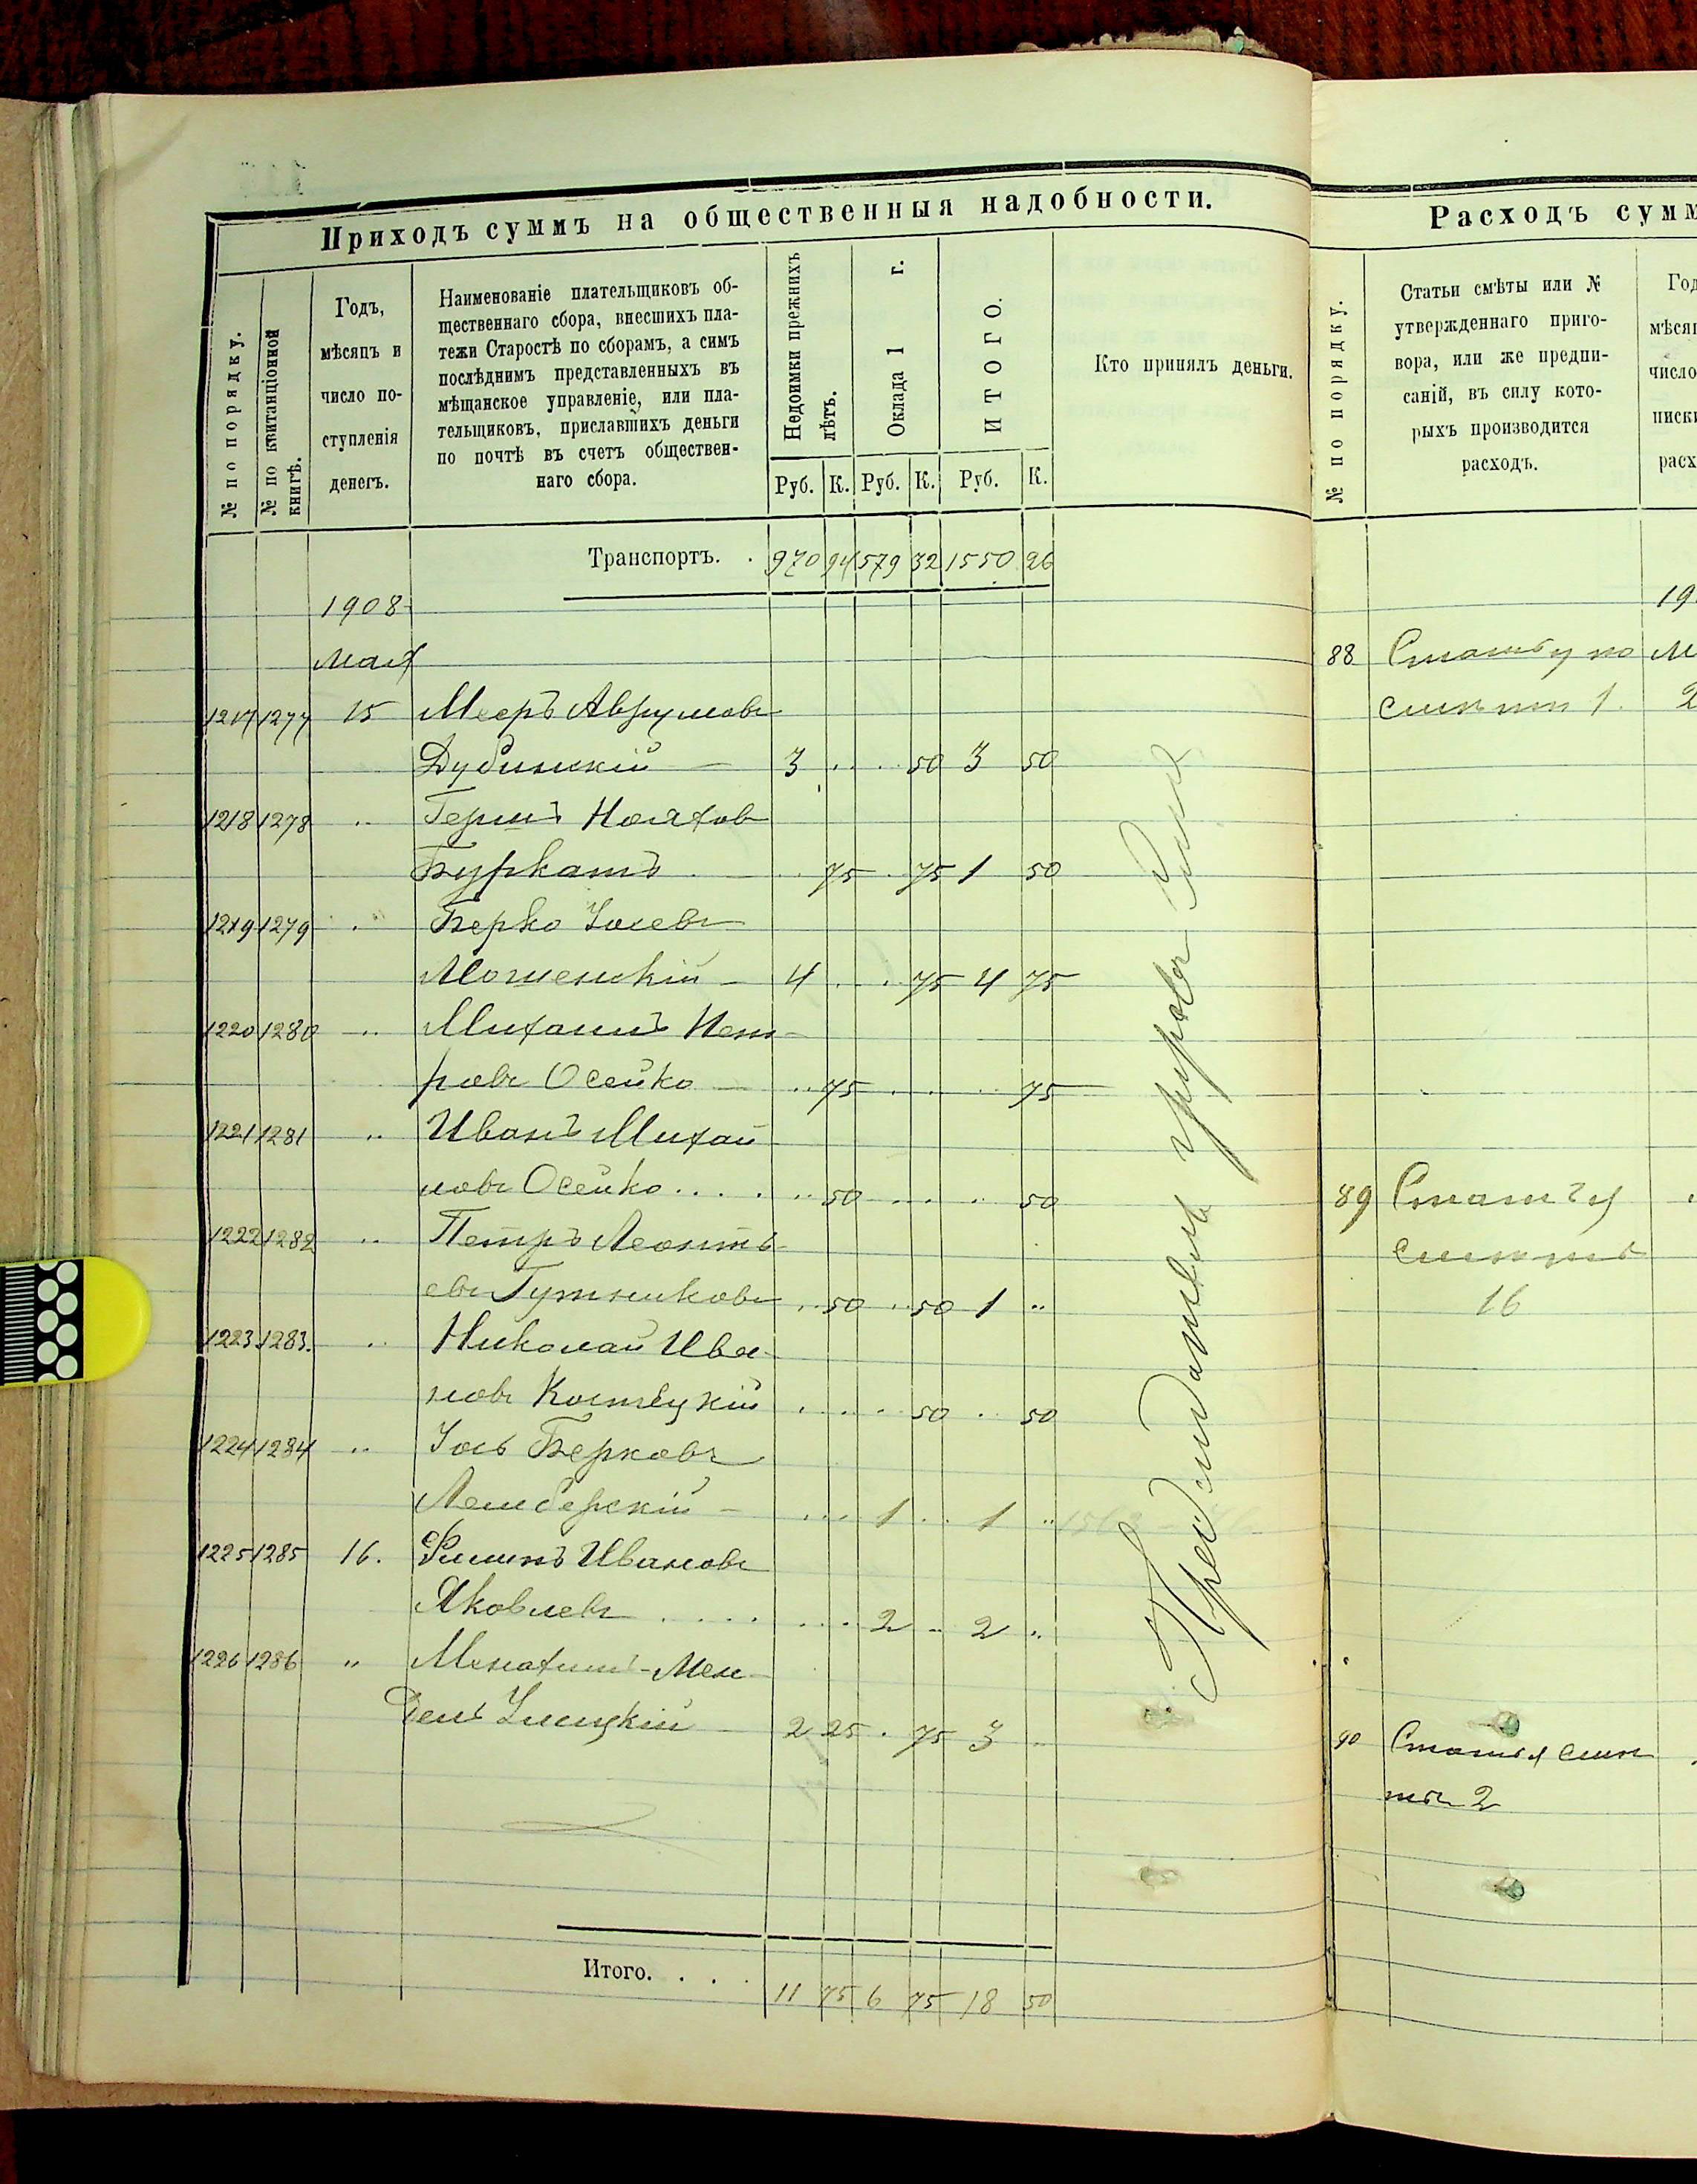 Приходъ суммъ на общественныя надобности.
№ по порядку.
№ по квитанціонной
книгѣ.
Годъ,
мѣсяцъ и
число по-
ступленія
денегъ.
Наименованіе плательщиковъ об-
щественнаго сбора, внесшихъ пла-
тежи Старостѣ по сборамъ, а симъ
послѣднимъ представленныхъ въ
мѣщанское управленіе, или пла-
тельщиковъ, приславшихъ деньги
по почтѣ въ счетъ обществен-
наго сбора.
Недоимки прежнихъ
лѣтъ.
Оклада 1 г.
ИТОГО.
Руб. К. Руб. К. Руб. К.
Кто принялъ деньги.
Транспортъ. . 970 94 579 32 1550 26
1908
Мая
1217 1277 15 Мееръ Аврумовъ
Дубинскій — 3 . . . 50 3 50
1218 1278 .. Гершъ
. . 75 . 75 1 50
1219 1279 .. Берко Іосевъ
4 . . . 75 4 75
1220 1280 .. Михаилъ Пет-
ровъ Осейко — .. 75 . . . . 75
1221 1281 .. Иванъ Михай
ловъ Осейко . . . . .. 50 . . . .. 50
1222 1282 .. Петръ Леонть-
евъ .. 50 .. 50 1 ..
1223 1283. .. Николай Ива-
новъ . . . . 50 .. 50
1224 1284 .. Іось Берковъ
Лемберскій — ... 1 .. 1 ..
1225 1285 16. Филипъ Ивановъ
Яковлевъ . . . . ... 2 .. 2 ..
1226 1286 " Менахимъ-Мен-
дель — 2 25 . 75 3 ..
Итого. . . . 11 75 6 75 18 50
Расходъ сумм
№ по порядку.
Статьи смѣты или №
утвержденнаго приго-
вора, или же предпи-
саній, въ силу кото-
рыхъ производится
расходъ.
Год
мѣсяц
число
писки
расх
19
88 Статья по М
смѣтѣ 1. 2
89 Статья
смѣты
16
90 Статья смѣ
ты 2